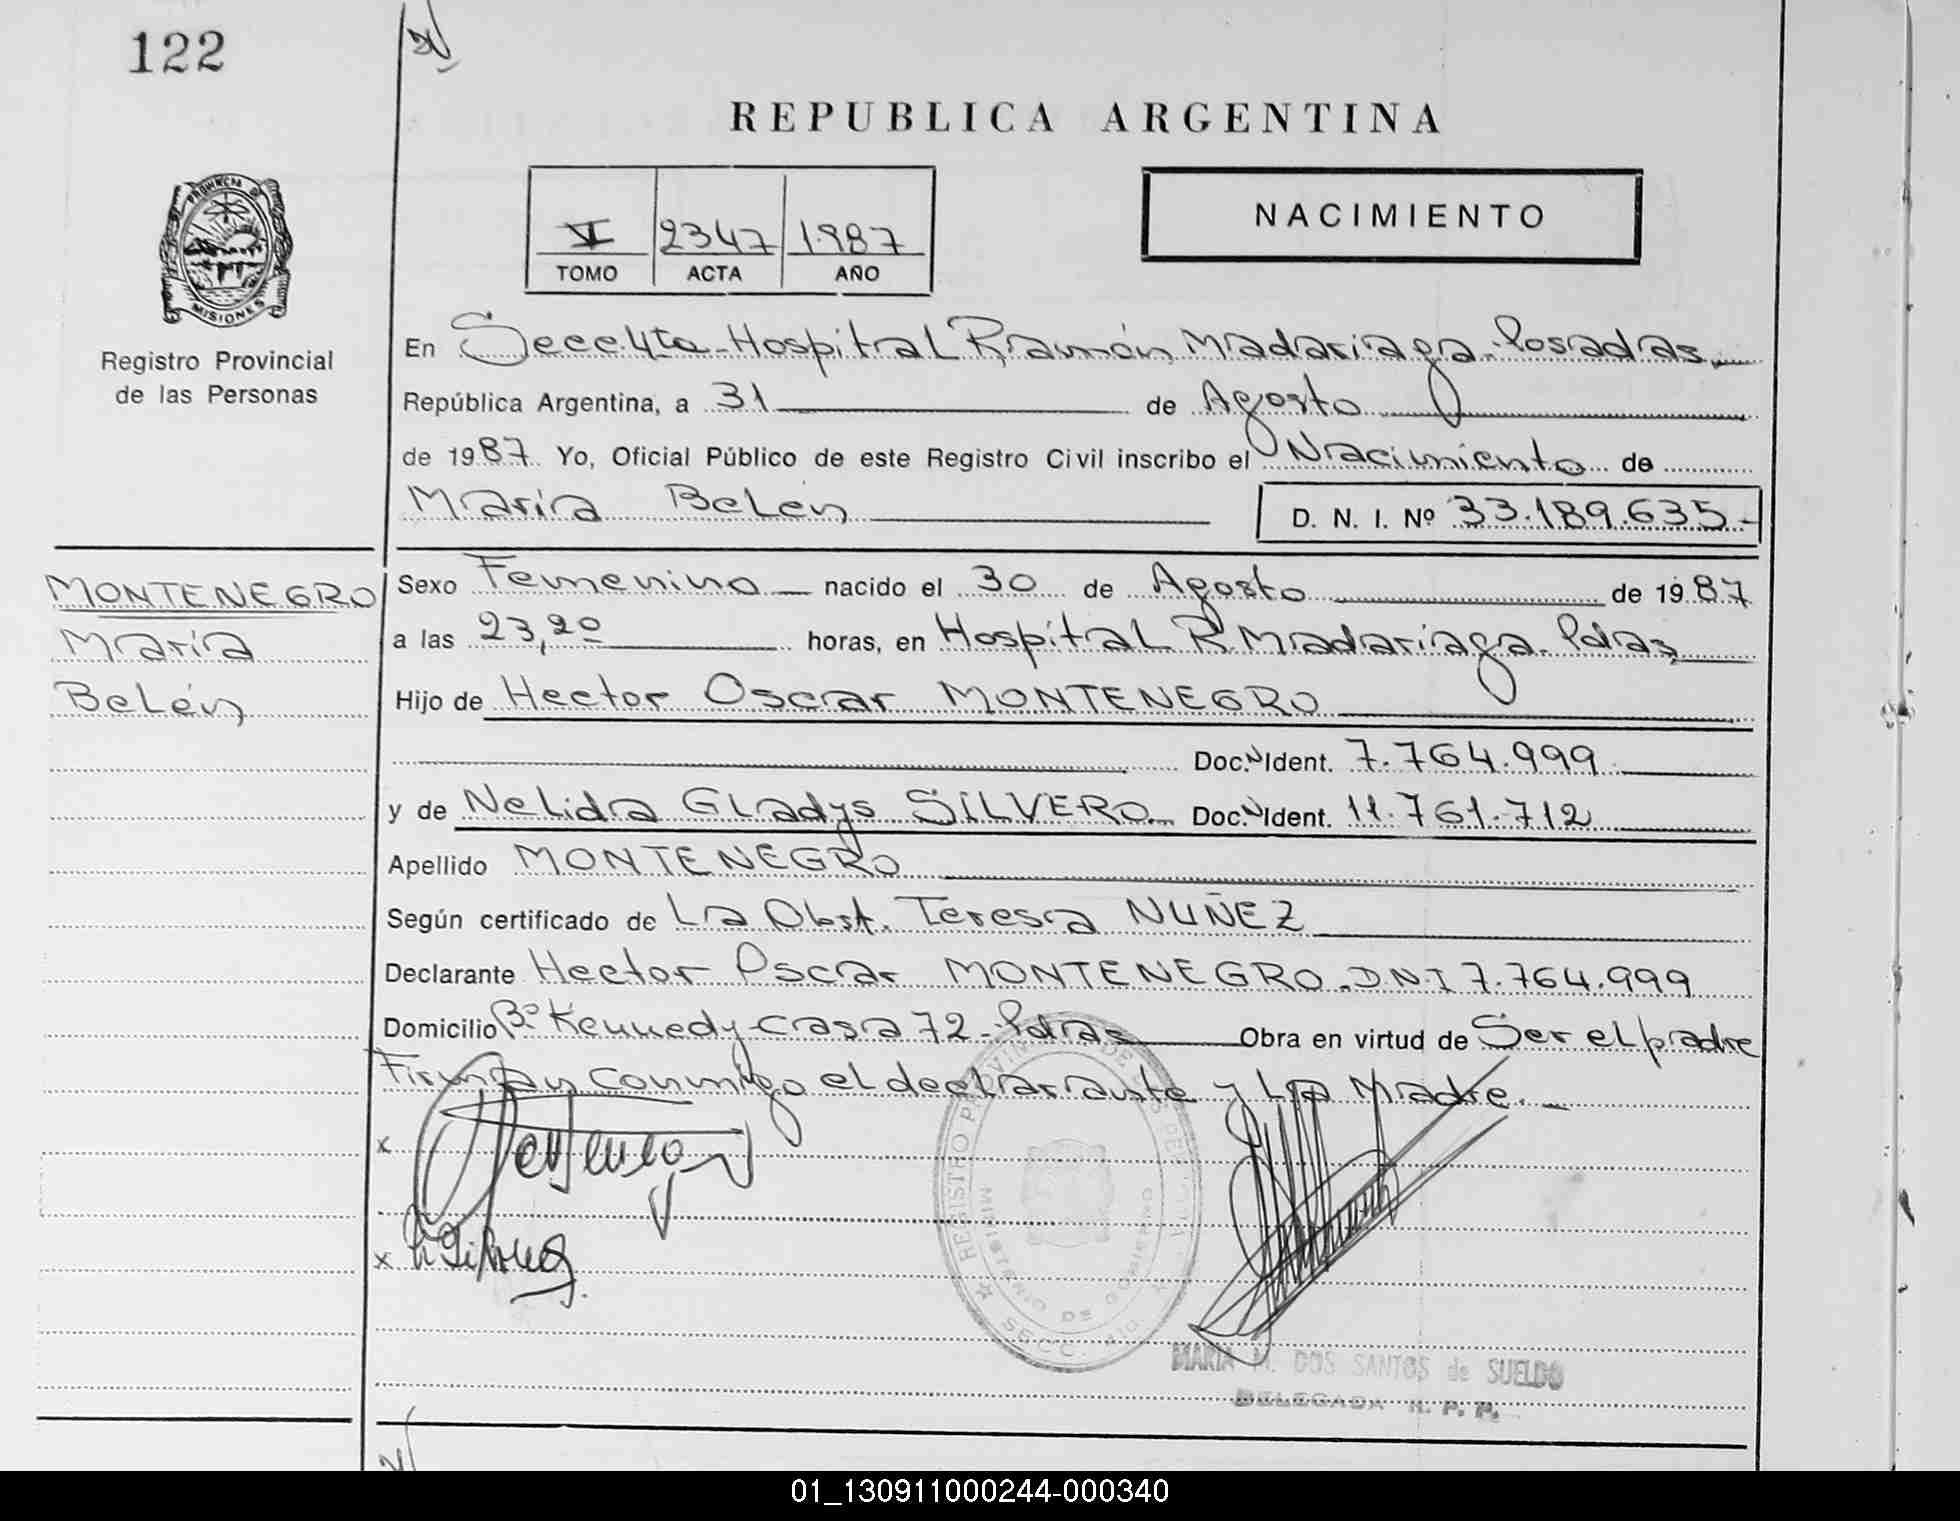 122
REPUBLICA ARGENTINA
PROVINCIA DE
MISIONES
Registro Provincial
de las Personas
V 2347 1987
TOMO ACTA AÑO
NACIMIENTO
En Secc. 4ta - Hospital Ramón Madariaga - Posadas
República Argentina, a 31 de Agosto
de 1987 Yo, Oficial Público de este Registro Civil inscribo el Nacimiento de
María Belén D. N. I. Nº 33.189.635.-
MONTENEGRO
María
Belén
Sexo Femenino nacido el 30 de Agosto de 1987
a las 23,20 horas, en Hospital R. Madariaga - Pdas,
Hijo de Hector Oscar MONTENEGRO
Doc. N Ident. 7.764.999
y de Nelida Gladys SILVERO Doc. N Ident. 11.761.712
Apellido MONTENEGRO
Según certificado de La Obst. Teresa NUÑEZ
Declarante Hector Oscar MONTENEGRO - D.N.I 7.764.999
Domicilio Bº Kennedy - casa 72 - Pdas Obra en virtud de Ser el padre
Firman conmigo el declarante y La Madre. -
x
x
REGISTRO PROVIN DE
MINISTERIO DE GOBIERNO
SECC. 4
MARIA M. DOS SANTOS de SUELDO
DELEGADA R. P. P.
01_130911000244-000340